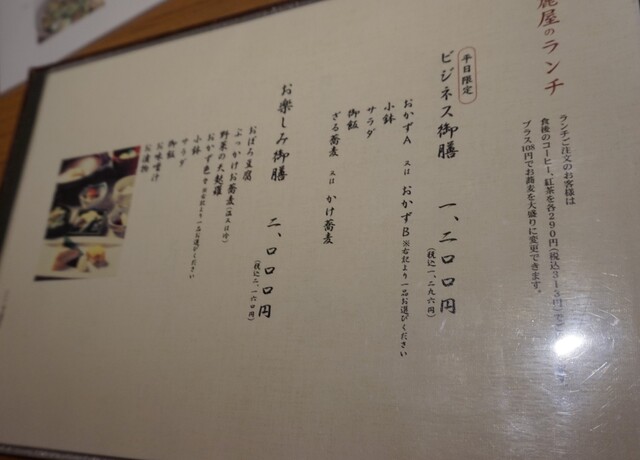 鹿屋のランチ
ランチご注文のお客様は
食後のコーヒー、紅茶を各290円(税込313円)で
プラス108円でお蕎麦を大盛りに変更できます。
平日限定
ビジネス御膳 一、二〇〇円
(税込一、二九六円)
おかずA 又は おかずB ※右記より一品お選びください
小鉢
サラダ
御飯
ざる蕎麦 又は かけ蕎麦
お楽しみ御膳 二、〇〇〇円
(税込二、一六〇円)
おぼろ豆腐
ぶっかけお蕎麦(温又は冷)
野菜の天麩羅
おかず色々※右記より一品お選びください
小鉢
サラダ
御飯
お味噌汁
お漬物